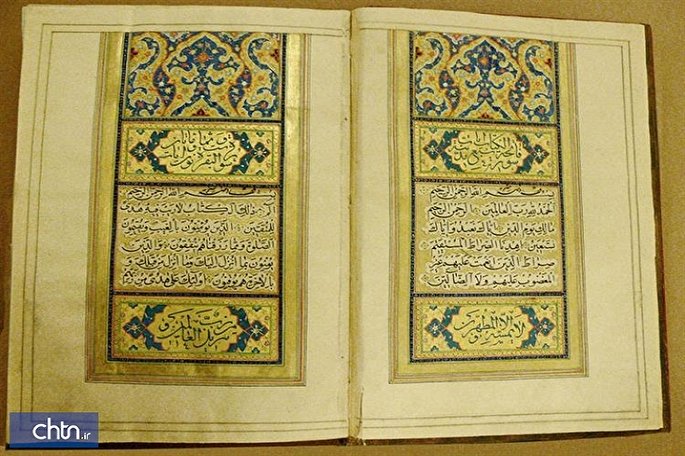 بسم الله الرحمن الرحيم
الحمد لله رب العالمين الرحمن الرحيم
مالك يوم الدين اياك نعبد واياك
نستعين اهدنا الصراط المستقيم
صراط الذين انعمت عليهم غير
المغضوب عليهم ولا الضالين
لا يمسه الا المطهرون
سورة البقرة
بسم الله الرحمن الرحيم
الم ذلك الكتاب لا ريب فيه هدى
للمتقين الذين يؤمنون بالغيب ويقيمون
الصلوة ومما رزقناهم ينفقون والذين
يؤمنون بما انزل اليك وما انزل من قبلك و
بالاخرة هم يوقنون اولئك على هدى من
تنزيل من رب العالمين
chtn.ir